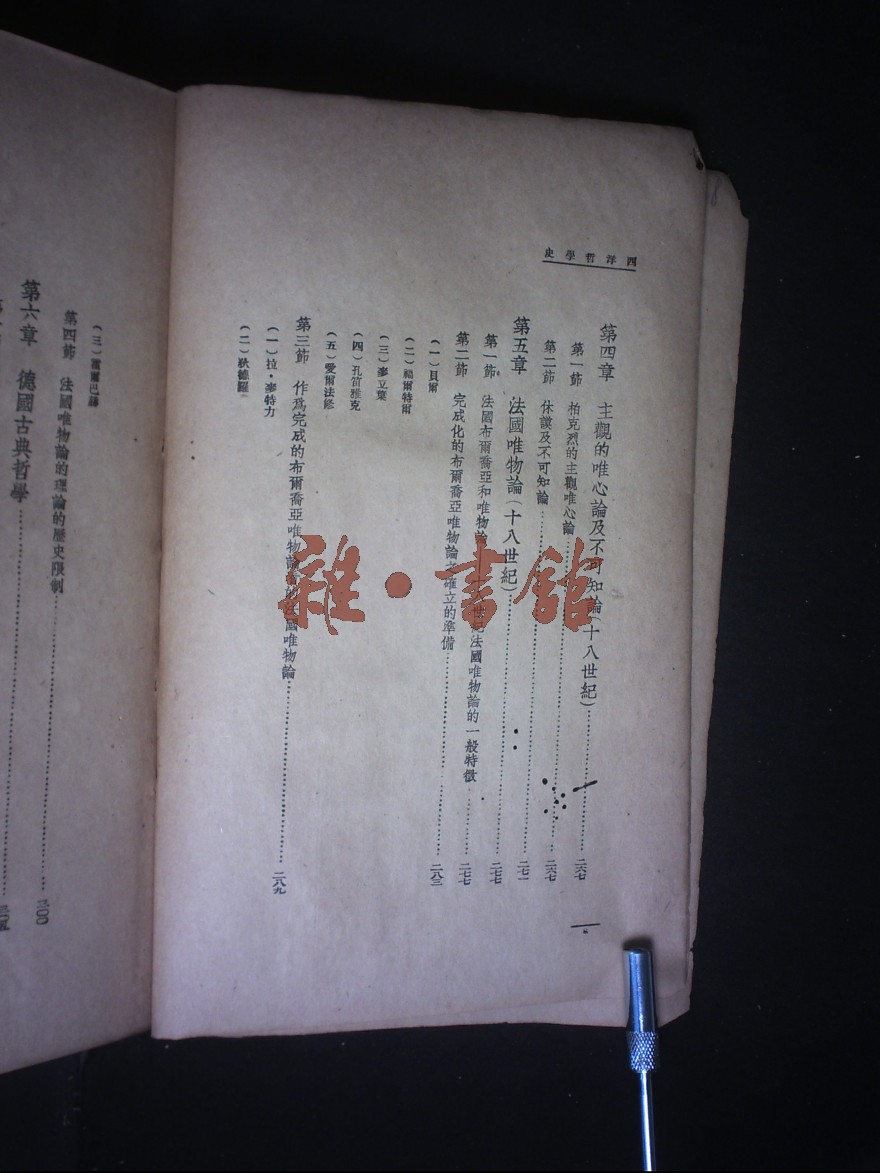 西洋哲學史
第四章　主觀的唯心論及不可知論(十八世紀)…………二六七
第一節　柏克烈的主觀唯心論…………二六七
第二節　休謨及不可知論…………二七一
第五章　法國唯物論(十八世紀)…………二七七
第一節　法國布爾喬亞和唯物論　世紀法國唯物論的一般特徵…………二七七
第二節　完成化的布爾喬亞唯物論之確立的準備…………二八三
(一)貝爾
(二)福爾特爾
(三)麥立葉
(四)孔笛雅克
(五)愛爾法修
第三節　作為完成的布爾喬亞唯物論　的法國唯物論…………二八九
(一)拉・麥特力
(二)狄德羅
(三)霍爾巴赫
第四節　法國唯物論的理論的歷史限制…………三〇〇
第六章　德國古典哲學…………三〇五
雜・書館